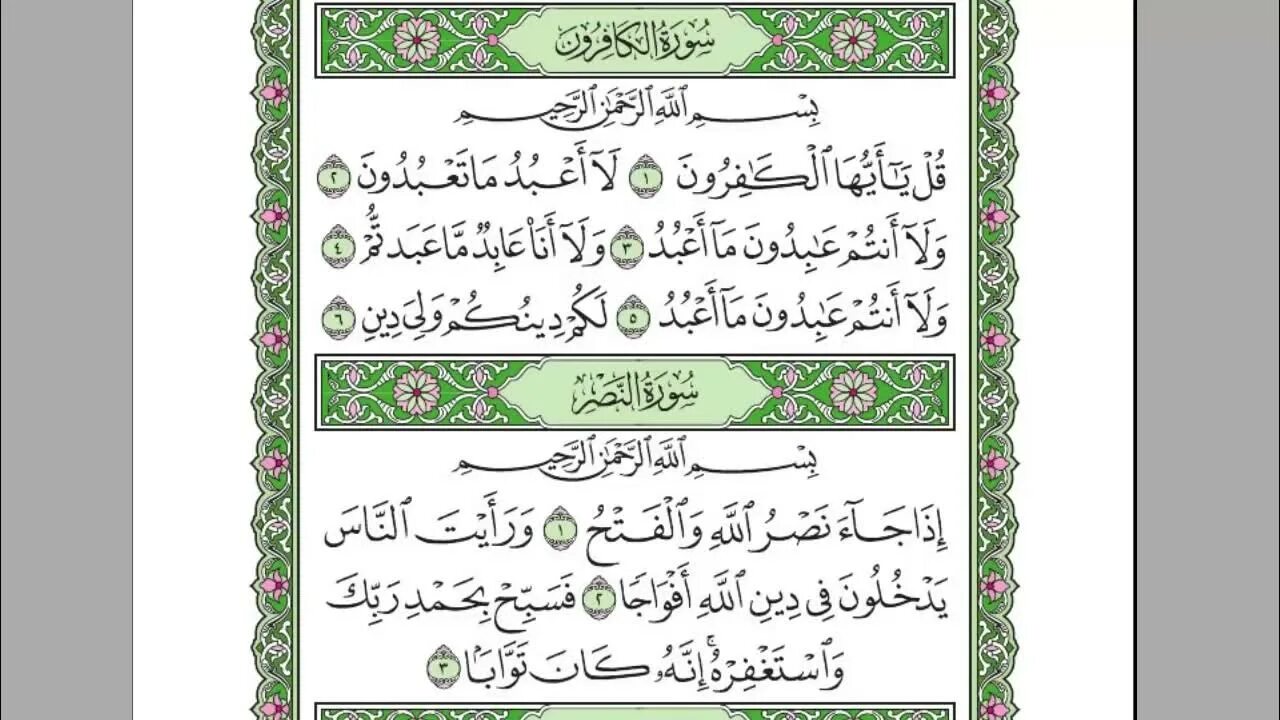 سُورَةُ الكَافِرُونَ
بِسْمِ ٱللَّهِ ٱلرَّحْمَٰنِ ٱلرَّحِيمِ
قُلْ يَٰٓأَيُّهَا ٱلْكَٰفِرُونَ ١ لَآ أَعْبُدُ مَا تَعْبُدُونَ ٢
وَلَآ أَنتُمْ عَٰبِدُونَ مَآ أَعْبُدُ ٣ وَلَآ أَنَا۠ عَابِدٌ مَّا عَبَدتُّمْ ٤
وَلَآ أَنتُمْ عَٰبِدُونَ مَآ أَعْبُدُ ٥ لَكُمْ دِينُكُمْ وَلِىَ دِينِ ٦
سُورَةُ النَّصْرِ
بِسْمِ ٱللَّهِ ٱلرَّحْمَٰنِ ٱلرَّحِيمِ
إِذَا جَآءَ نَصْرُ ٱللَّهِ وَٱلْفَتْحُ ١ وَرَأَيْتَ ٱلنَّاسَ
يَدْخُلُونَ فِى دِينِ ٱللَّهِ أَفْوَاجًا ٢ فَسَبِّحْ بِحَمْدِ رَبِّكَ
وَٱسْتَغْفِرْهُۚ إِنَّهُۥ كَانَ تَوَّابًۢا ٣